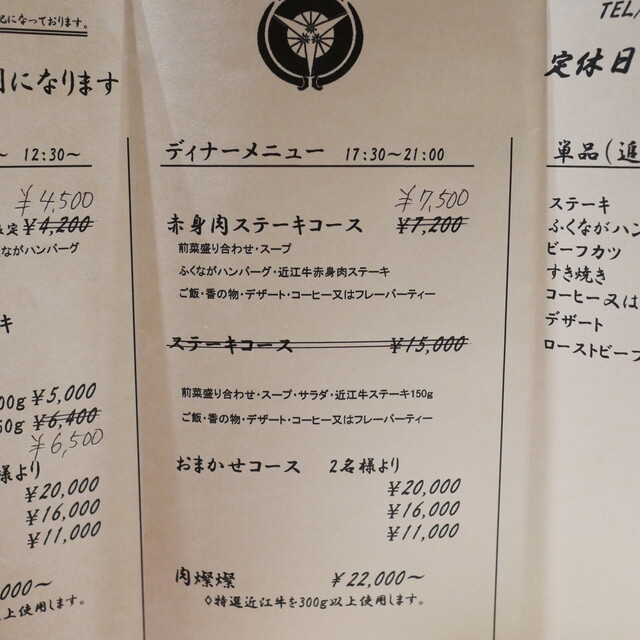 記になっております。
円になります
～ 12:30～
￥4,500
定 ￥4,200
ながハンバーグ
キ
00g ￥5,000
50g ￥6,400
￥6,500
様より
￥20,000
￥16,000
￥11,000
,000～
上使用します。
ディナーメニュー 17:30～21:00
￥7,500
赤身肉ステーキコース ￥7,200
前菜盛り合わせ・スープ
ふくながハンバーグ・近江牛赤身肉ステーキ
ご飯・香の物・デザート・コーヒー又はフレーバーティー
ステーキコース ￥15,000
前菜盛り合わせ・スープ・サラダ・近江牛ステーキ150g
ご飯・香の物・デザート・コーヒー又はフレーバーティー
おまかせコース 2名様より
￥20,000
￥16,000
￥11,000
肉燦燦 ￥22,000～
◇特選近江牛を300g以上使用します。
TEL/
定休日
単品(追
ステーキ
ふくながハン
ビーフカツ
すき焼き
コーヒー又は
デザート
ローストビーフ